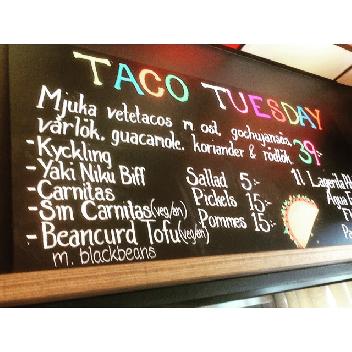 TACO TUESDAY
Mjuka vetetacos m ost, gochujansås,
vårlök, guacamole, koriander & rödlök 39:-
-Kyckling
-Yaki Niku Biff
-Carnitas
-Sin Carnitas (veg/en)
-Beancurd Tofu (veg/en)
m. blackbeans
Sallad 5:-
Pickels 15:-
Pommes 15:-
1l Lagerita
Agua